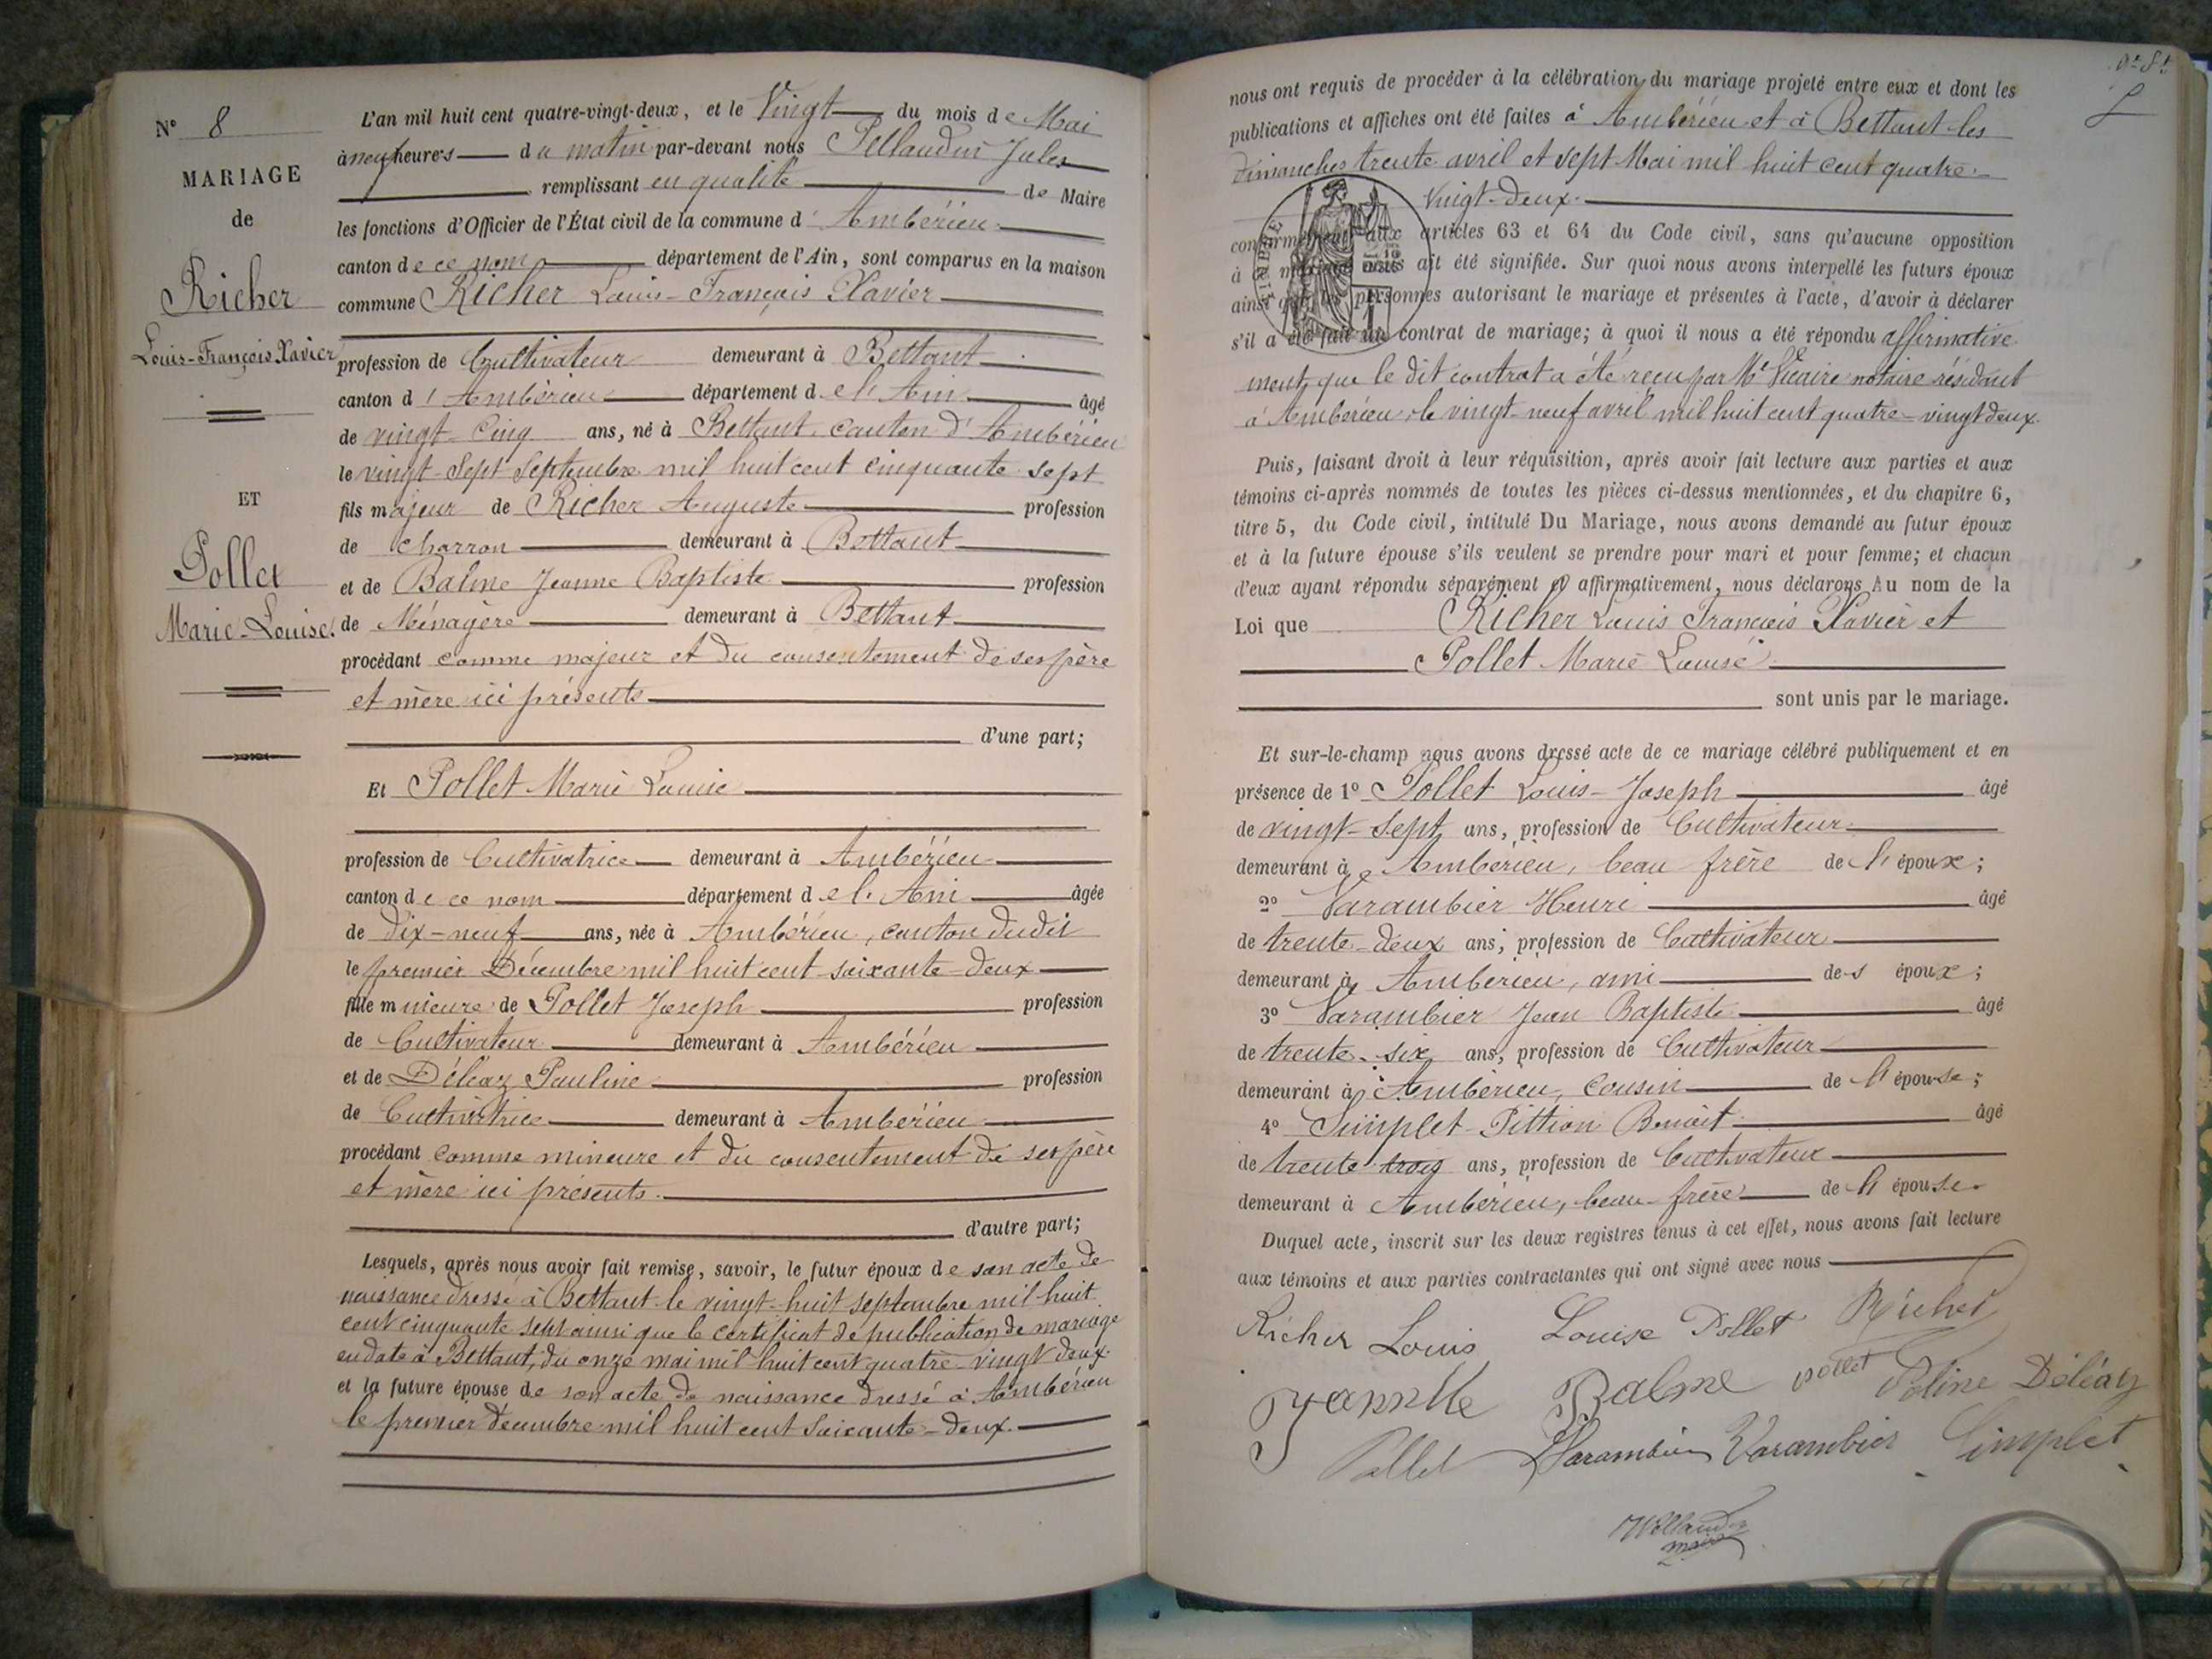 N° 8
MARIAGE
de
Richer
Louis-François Xavier
ET
Pollet
Marie-Louise.
L'an mil huit cent quatre-vingt-deux, et le Vingt du mois de Mai
à neuf heures du matin par-devant nous Pellaudin Jules
remplissant en qualité de Maire
les fonctions d'Officier de l'État civil de la commune d'Ambérieu
canton de ce nom département de l'Ain, sont comparus en la maison
commune Richer Louis-François Xavier
profession de Cultivateur demeurant à Bettant
canton d'Ambérieu département de l'Ain âgé
de vingt-Cinq ans, né à Bettant, canton d'Ambérieu
le vingt-Sept Septembre mil huit cent cinquante sept
fils majeur de Richer Auguste profession
de charron demeurant à Bettant
et de Balme Jeanne Baptiste profession
de Ménagère demeurant à Bettant
procédant comme majeur et du consentement de ses père
et mère ici présents
d'une part;
Et Pollet Marie Louise
profession de Cultivatrice demeurant à Ambérieu
canton de ce nom département de l'Ain âgée
de Dix-neuf ans, née à Ambérieu, canton dudit
le premier Décembre mil huit cent soixante-deux
fille mineure de Pollet Joseph profession
de Cultivateur demeurant à Ambérieu
et de Déléaz Pauline profession
de Cultivatrice demeurant à Ambérieu
procédant comme mineure et du consentement de ses père
et mère ici présents.
d'autre part;
Lesquels, après nous avoir fait remise, savoir, le futur époux de son acte de
naissance dressé à Bettant le vingt-huit septembre mil huit
cent cinquante sept ainsi que le certificat de publication de mariage
en date à Bettant, du onze mai mil huit cent quatre-vingt deux.
et la future épouse de son acte de naissance dressé à Ambérieu
le premier décembre mil huit cent soixante-deux.
nous ont requis de procéder à la célébration du mariage projeté entre eux et dont les
publications et affiches ont été faites à Ambérieu et à Bettant les
dimanches trente avril et sept Mai mil huit cent quatre-
vingt-deux.
conformément aux articles 63 et 64 du Code civil, sans qu'aucune opposition
à ce mariage nous ait été signifiée. Sur quoi nous avons interpellé les futurs époux
ainsi que les personnes autorisant le mariage et présentes à l'acte, d'avoir à déclarer
s'il a été fait un contrat de mariage; à quoi il nous a été répondu affirmative
ment, que le dit contrat a été reçu par Me Vicaire notaire résidant
à Ambérieu, le vingt-neuf avril mil huit cent quatre-vingt deux.
Puis, faisant droit à leur réquisition, après avoir fait lecture aux parties et aux
témoins ci-après nommés de toutes les pièces ci-dessus mentionnées, et du chapitre 6,
titre 5, du Code civil, intitulé Du Mariage, nous avons demandé au futur époux
et à la future épouse s'ils veulent se prendre pour mari et pour femme; et chacun
d'eux ayant répondu séparément et affirmativement, nous déclarons Au nom de la
Loi que Richer Louis François Xavier et
Pollet Marie Louise
sont unis par le mariage.
Et sur-le-champ nous avons dressé acte de ce mariage célébré publiquement et en
présence de 1° Pollet Louis-Joseph âgé
de vingt-Sept ans, profession de Cultivateur
demeurant à Ambérieu, beau frère de l'époux;
2° Varambier Henri âgé
de trente-deux ans, profession de Cultivateur
demeurant à Ambérieu, ami des époux;
3° Varambier Jean Baptiste âgé
de trente-six ans, profession de Cultivateur
demeurant à Ambérieu, Cousin de l'épouse;
4° Simplet-Pittion Benoit âgé
de trente trois ans, profession de Cultivateur
demeurant à Ambérieu, beau-frère de l'épouse.
Duquel acte, inscrit sur les deux registres tenus à cet effet, nous avons fait lecture
aux témoins et aux parties contractantes qui ont signé avec nous
Richer Louis Louise Pollet Richer
Balme pollet Poline Déléaz
Pollet Varambier Varambier Simplet
maire